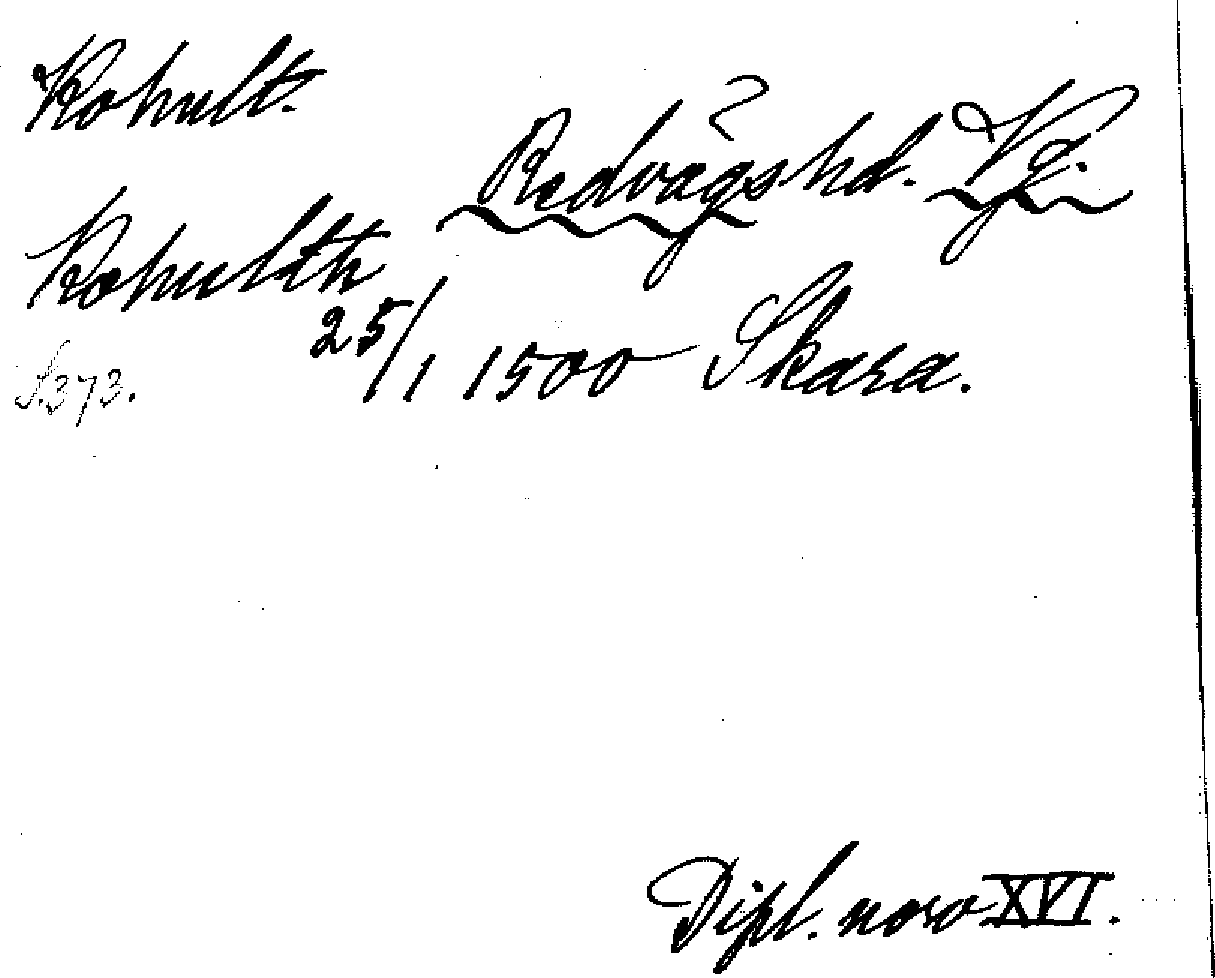 Kohult.
Redvägs hd. Vg.
?
Kohulth
25/1 1500 Skara.
S.373.
Dipl. norv XVI.